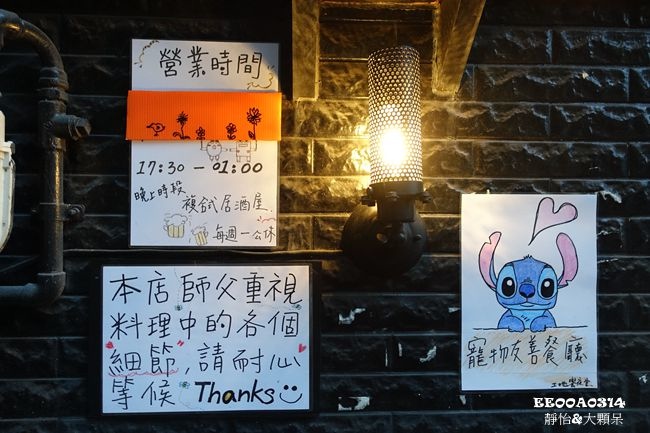 營業時間
17:30 — 01:00
晚上時段
複合式居酒屋
每週一公休
本店師父重視
料理中的各個
細節,請耐心
等候 Thanks
寵物友善餐廳
EE00A0314
靜怡&大顆呆